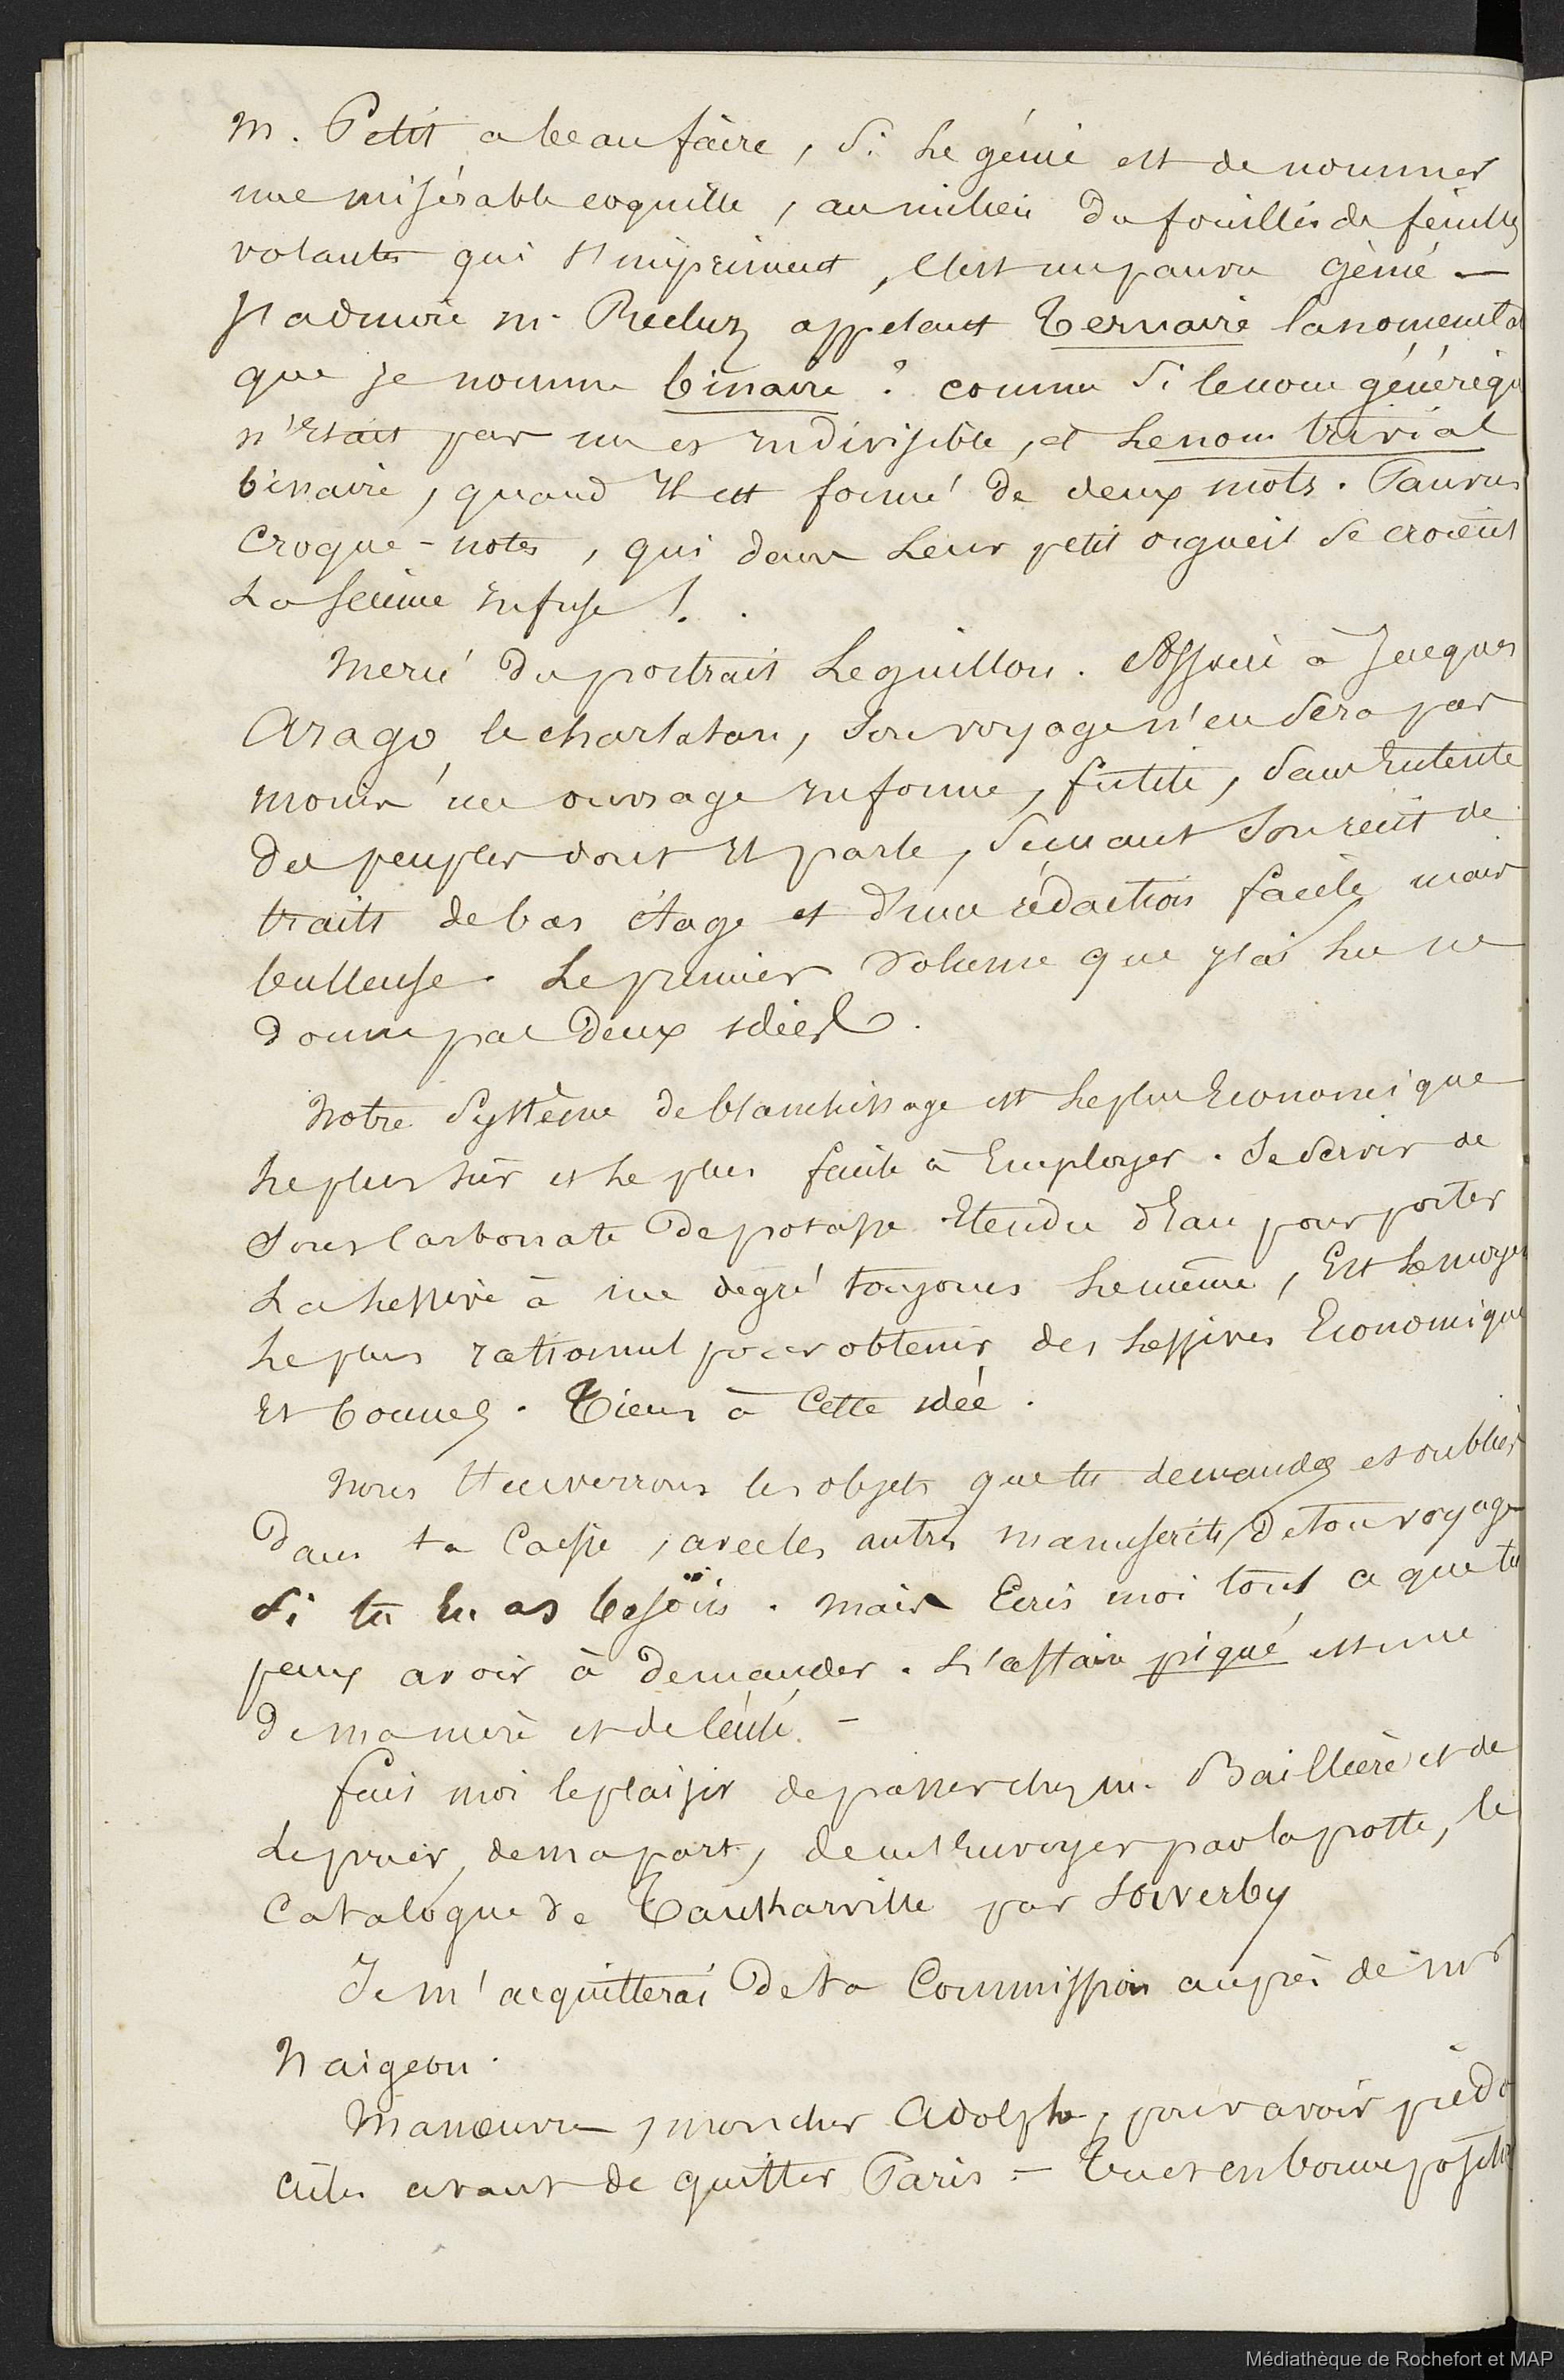 M. Petit a beau faire, Si Le génie est de nommer
une misérable coquille, au milieu du fouillis de feuilles
volantes qui S'impriment, C'est un pauvre génie —
J'admire M. Recluz appelant Ternaire la nomenclat
que je nomme binaire ? comme Si le nom génériqu
n'Etait pas un et Indivisible, et Le nom trivial
binaire, quand Il est formé de deux mots. Pauvres
Croque-notes, qui dans Leur petit orgueil Se croient
La Science Infuse !.
Merci du portrait Leguillou. Associé à Jacques
Arago le charlatan, Son voyage n'en Sera pas
moins un ouvrage Informe, futile, Sans Entente
des peuples dont Il parle, Semant Son récit de
traits de bas étage et d'une rédaction facile mais
bulleuse. Le premier Volume que j'ai Lu ne
donne pas Deux Idées.
Notre Système de blanchissage est Le plus Economique
Le plus Sûr et Le plus facile à Employer. Se Servir de
Sous Carbonate de potasse Etendu d'Eau pour porter
La Lessive à un degré toujours Le même, Est Le moyen
Le plus rationnel pour obtenir des Lessives Economique
Et bonnes. Tiens à Cette Idée.
Nous t'Enverrons les objets que tu demandes et oubliés
Dans ta Caisse, avec les autres manuscrits de ton voyage
Si tu En as besoin. Mais Ecris moi tout ce que tu
peux avoir à demander. L'affaire piqué est une
de ma mère et de Cécile. —
Fais moi le plaisir de passer chez M. Baillière et de
Le prier, de ma part, de m'Envoyer par la poste, le
Catalogue de Tankarville par Sowerby
Je m'acquitterai De ta Commission auprès de Mr
Naigeon.
Manœuvre, mon cher Adolphe, pour avoir pied o
ailes avant de quitter Paris — Tu es en bonne positio
Médiathèque de Rochefort et MAP